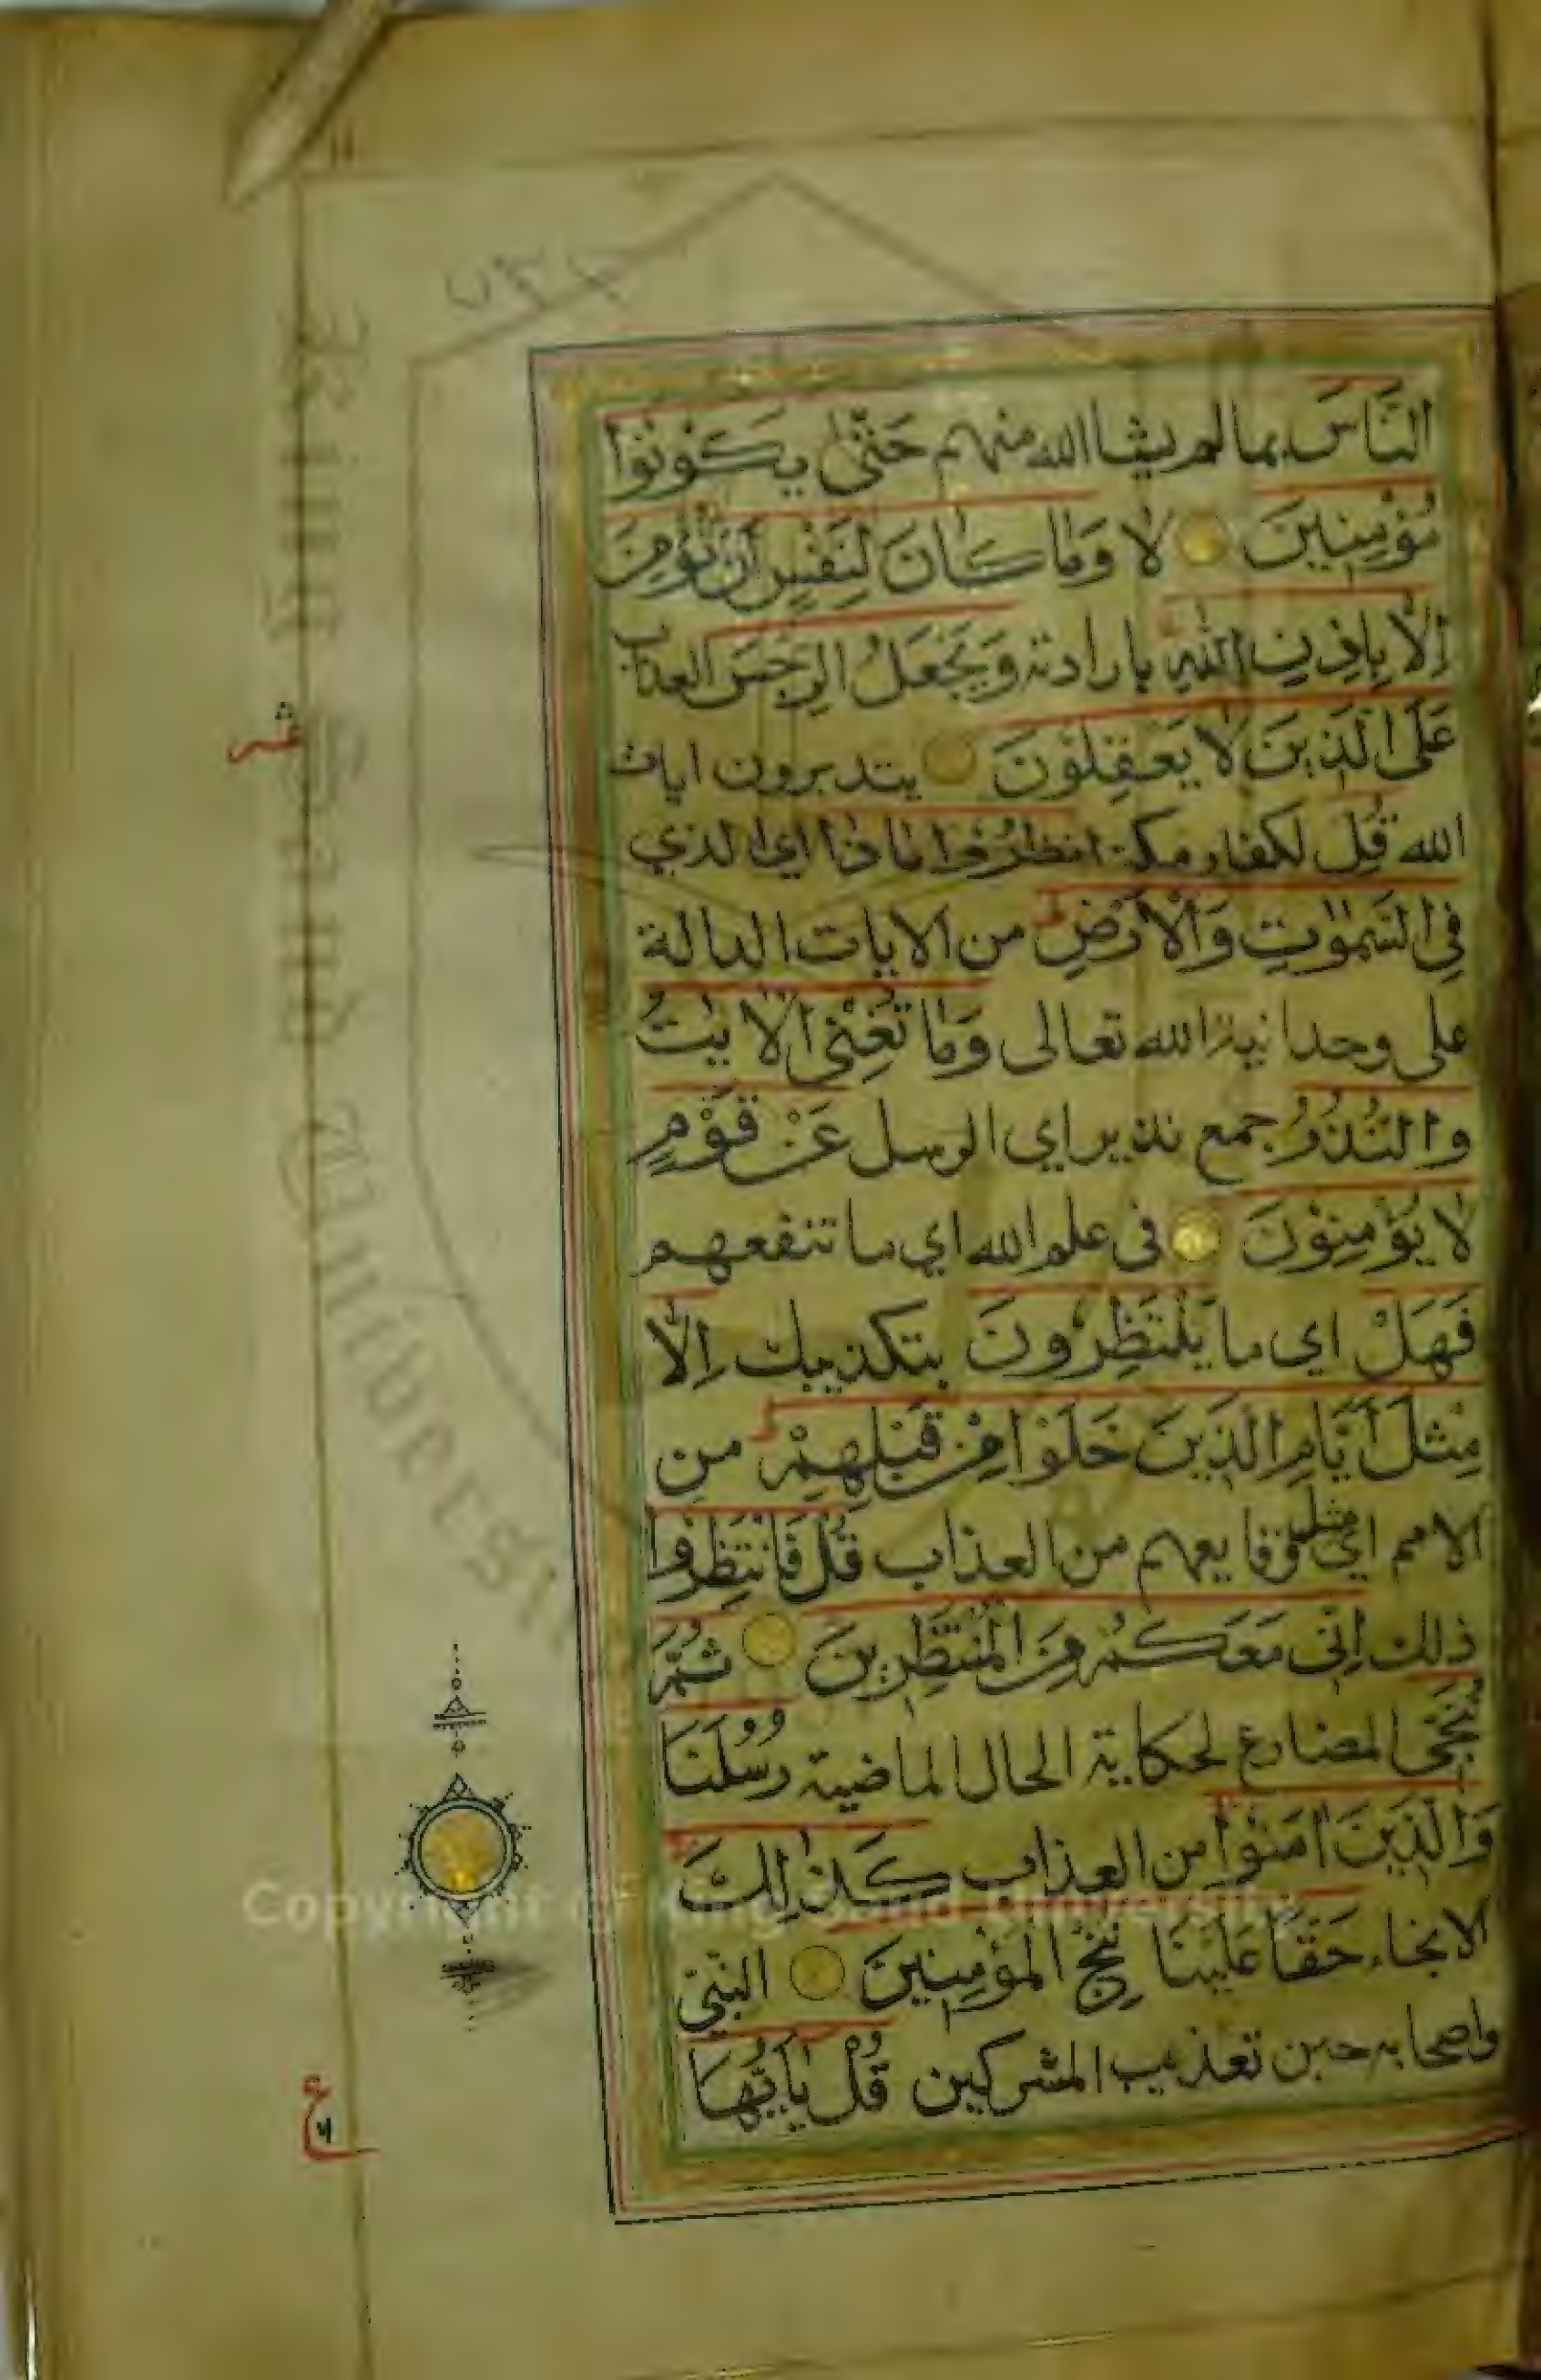 النَّاسَ بما لم يشاالله منهم حَتّٰى يَكُوْنُوْا
مُؤْمِنِيْنَ لا وَمَا كَانَ لِنَفْسٍ اَنْ تُؤْمِنَ
اِلَّا بِاِذْنِ اللّٰهِ بارادته وَيَجْعَلُ الرِّجْسَ العذاب
عَلَى الَّذِيْنَ لَا يَعْقِلُوْنَ يتدبرون ايات
الله قُلِ لكفار مكة انْظُرُوْا مَاذَا اي الذي
فِي السَّمٰوٰتِ وَالْاَرْضِ ط من الايات الدالة
على وحدانية الله تعالى وَمَا تُغْنِى الْاٰيٰتُ
وَالنُّذُرُ جمع نذير اي الرسل عَنْ قَوْمٍ
لَا يُؤْمِنُوْنَ فى علم الله اي ما تنفعهم
فَهَلْ اي ما يَنْتَظِرُوْنَ بتكذيبك اِلَّا
مِثْلَ اَيَّامِ الَّذِيْنَ خَلَوْا مِنْ قَبْلِهِمْ ط من
الامم اي مثل وقايعهم من العذاب قُلْ فَانْتَظِرُوْا
ذلك اِنِّى مَعَكُمْ مِنَ الْمُنْتَظِرِيْنَ ثُمَّ
نُنَجِّى المضارع لحكاية الحال الماضية رُسُلَنَا
وَالَّذِيْنَ اٰمَنُوْا من العذاب كَذٰلِكَ
الانجاء حَقًّا عَلَيْنَا نُنْجِ الْمُؤْمِنِيْنَ النبيّ
واصحابه حين تعذيب المشركين قُلْ يٰاَيُّهَا
ع
Copyright © King Saud University
King Saud University